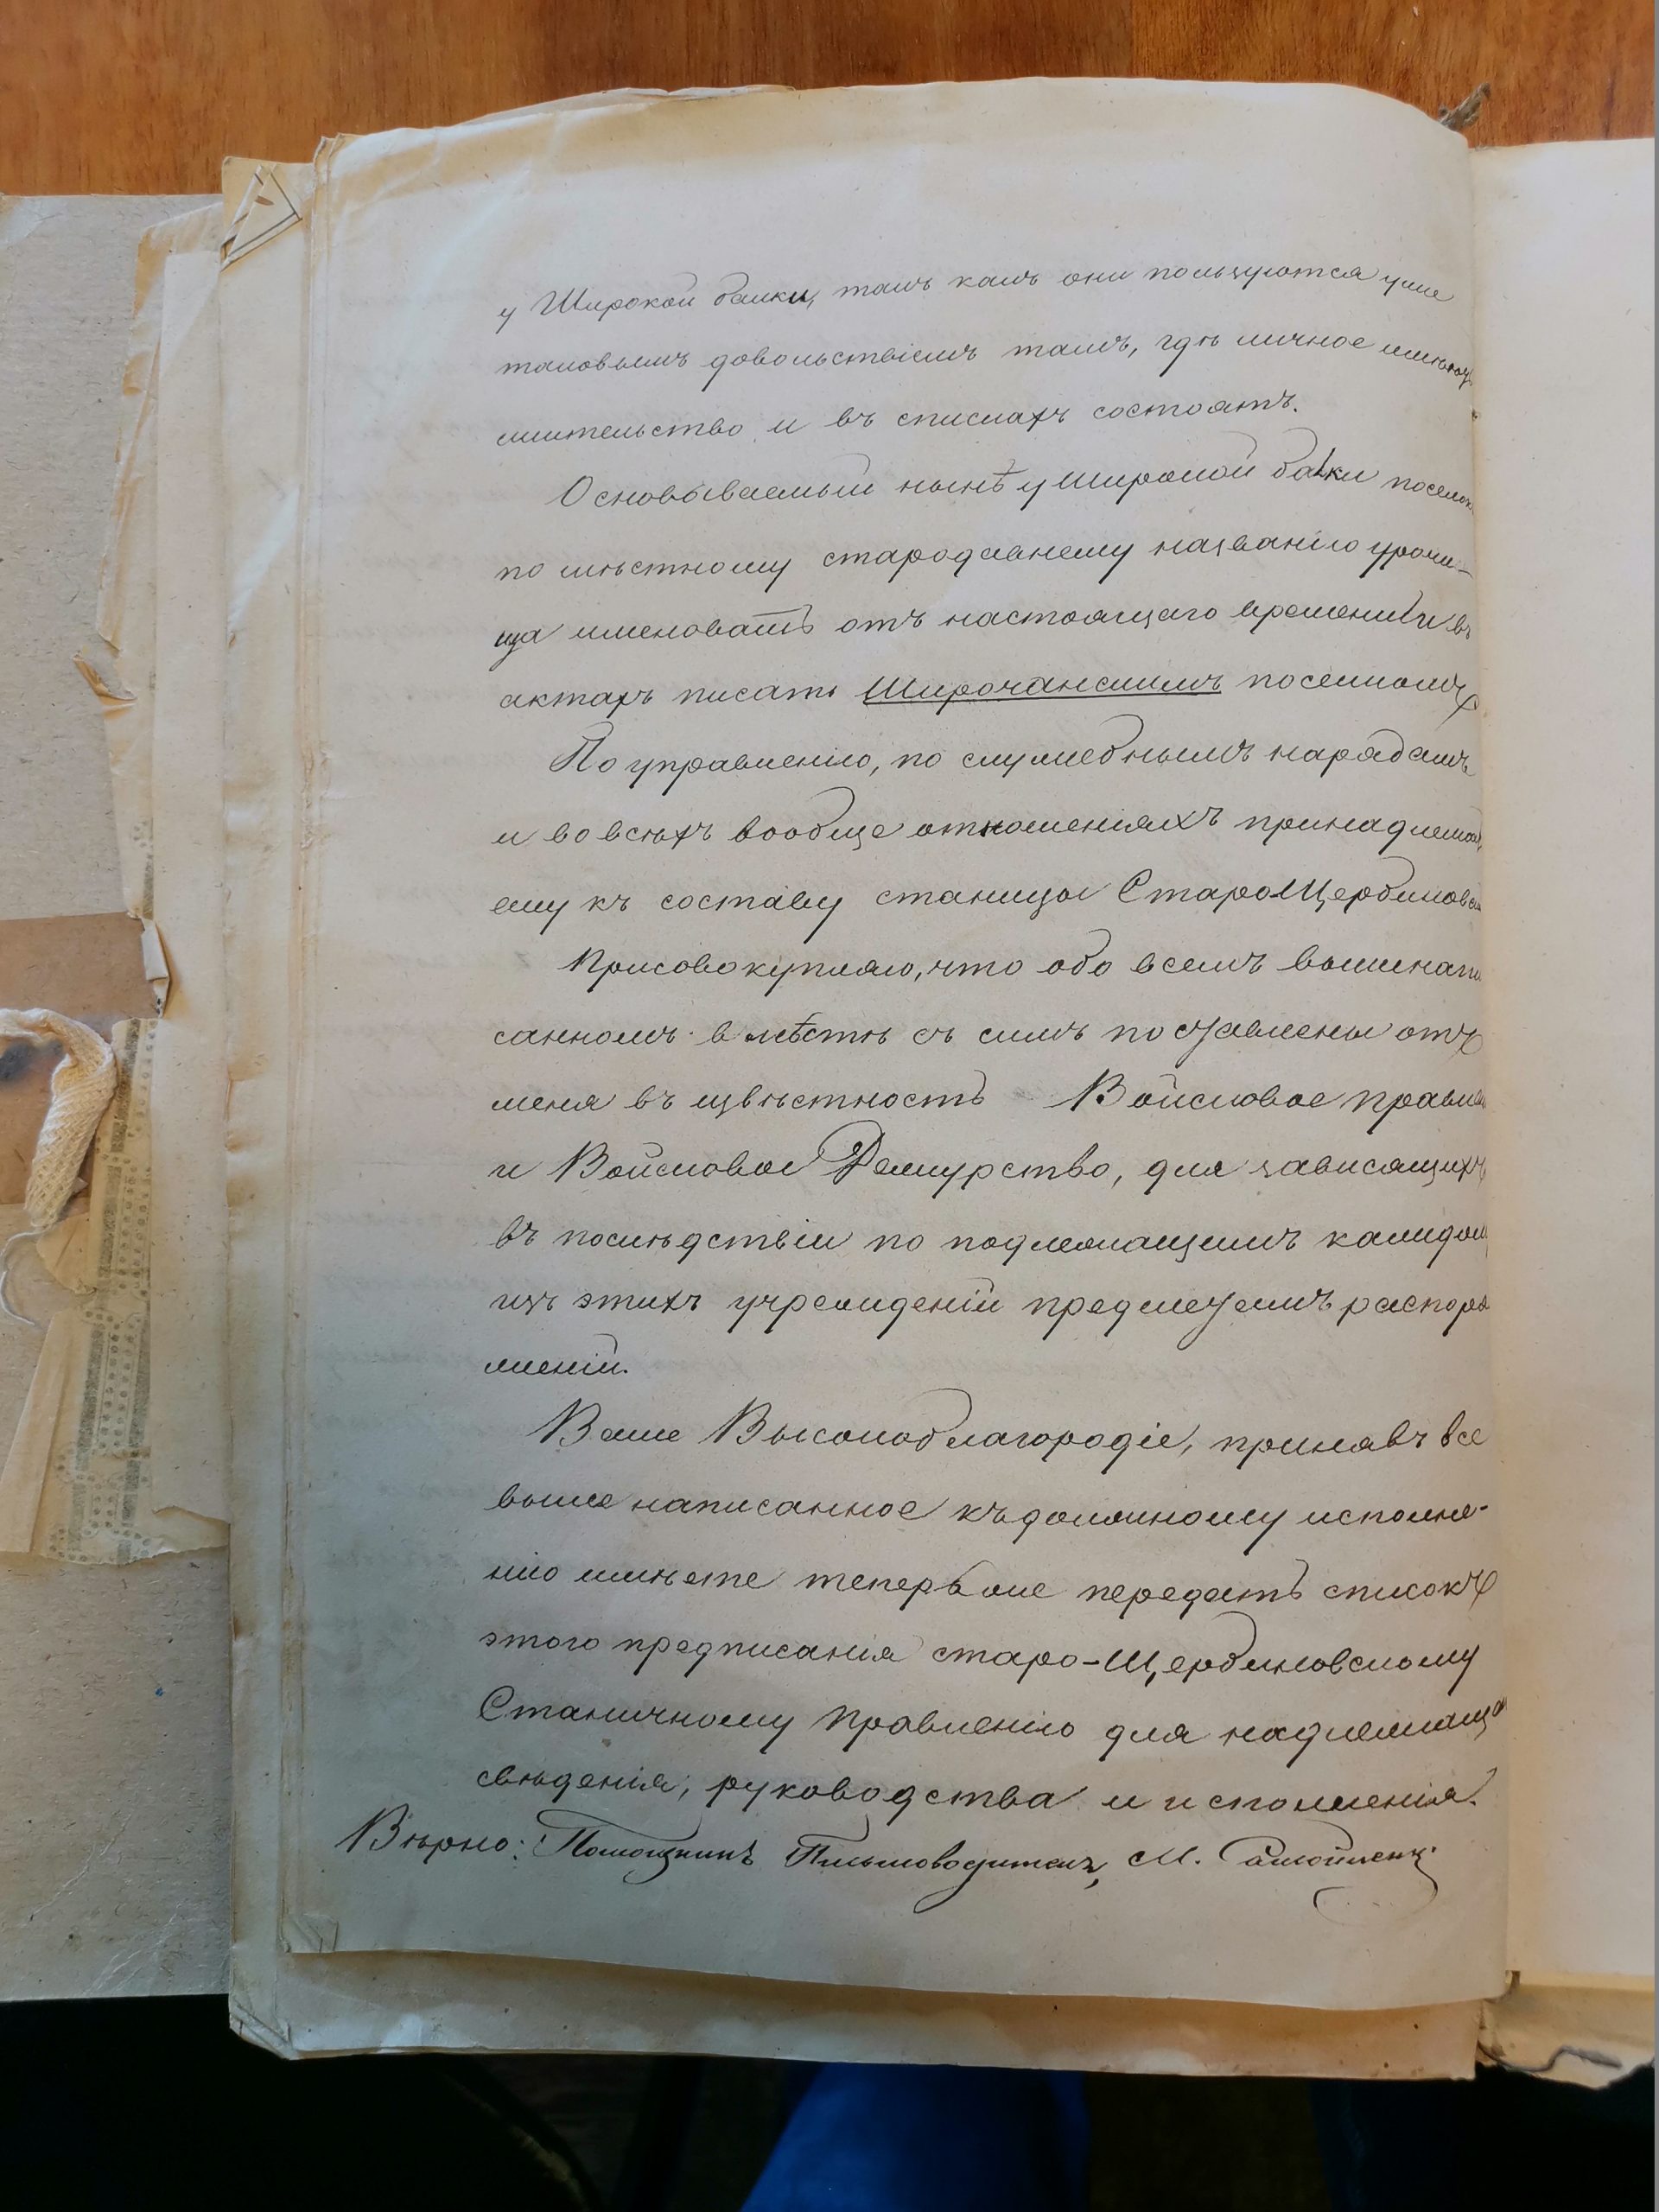 у Широкой балки, такъ какъ они пользуются уже
таковымъ довольствіемъ тамъ, гдѣ личное имѣютъ
жительство и въ спискахъ состоятъ.
Основываемый нынѣ у Широкой балки поселокъ
по мѣстному стародавнему названію урочи-
ща именовать отъ настоящаго времени и въ
актахъ писать Широчанскимъ поселкомъ
По управленію, по служебнымъ нарядамъ
и во всѣхъ вообще отношеніяхъ принадлежать
ему къ составу станицы Старо-Щербиновской
Присовокупляю, что обо всемъ вышенапи
санномъ вмѣстѣ съ симъ поставлены отъ
меня въ извѣстность Войсковое правленіе
и Войсковое Дежурство, для зависящихъ
въ послѣдствіи по подлежащимъ каждому
изъ этихъ учрежденій предметамъ распоря
женій.
Ваше Высокоблагородіе, принявъ все
выше написанное къ должному исполне-
нію имѣете теперь же передать списокъ
этого предписанія старо-Щербиновскому
Станичному Правленію для надлежащаго
свѣденія, руководства и исполненія.
Вѣрно: Помощникъ Письмоводителя, М.